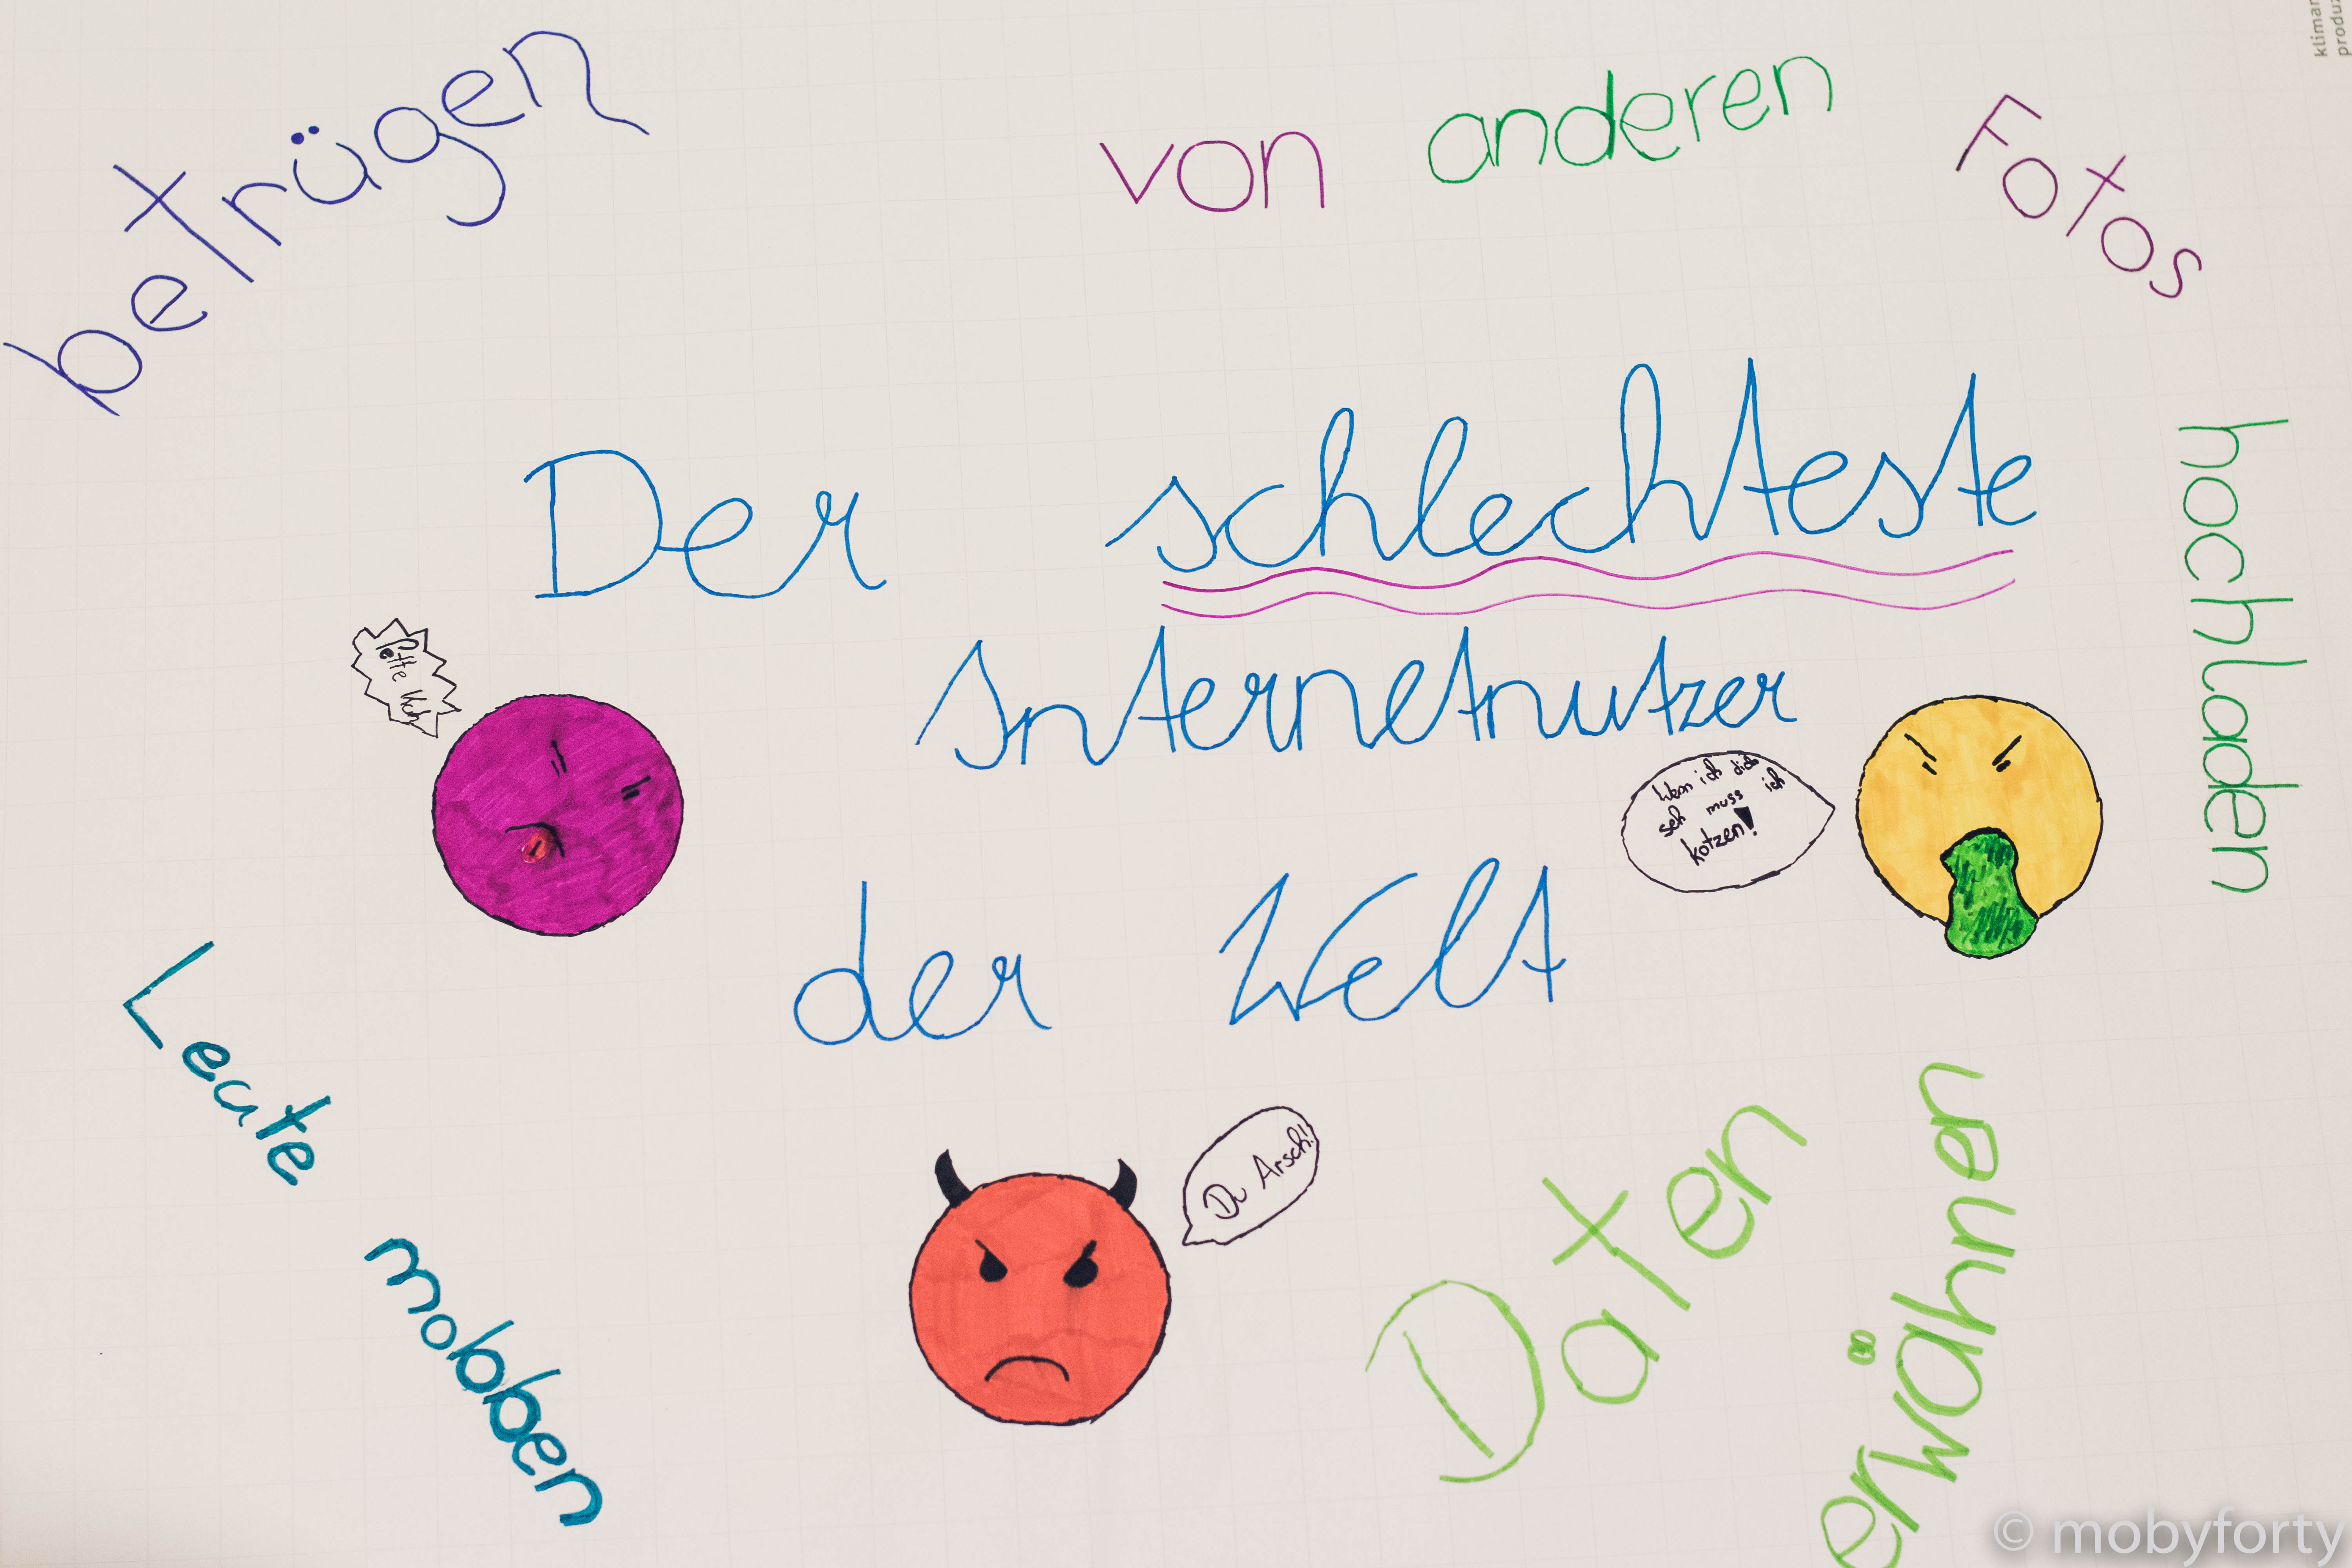 betrügen
von anderen Fotos
hochladen
Der schlechteste
Internetnutzer
der Welt
Fette Kuh
Wenn ich dich
seh muss ich
kotzen!
Leute mobben
Du Arsch!
Daten erwähnen
klimar
produz
© mobyforty